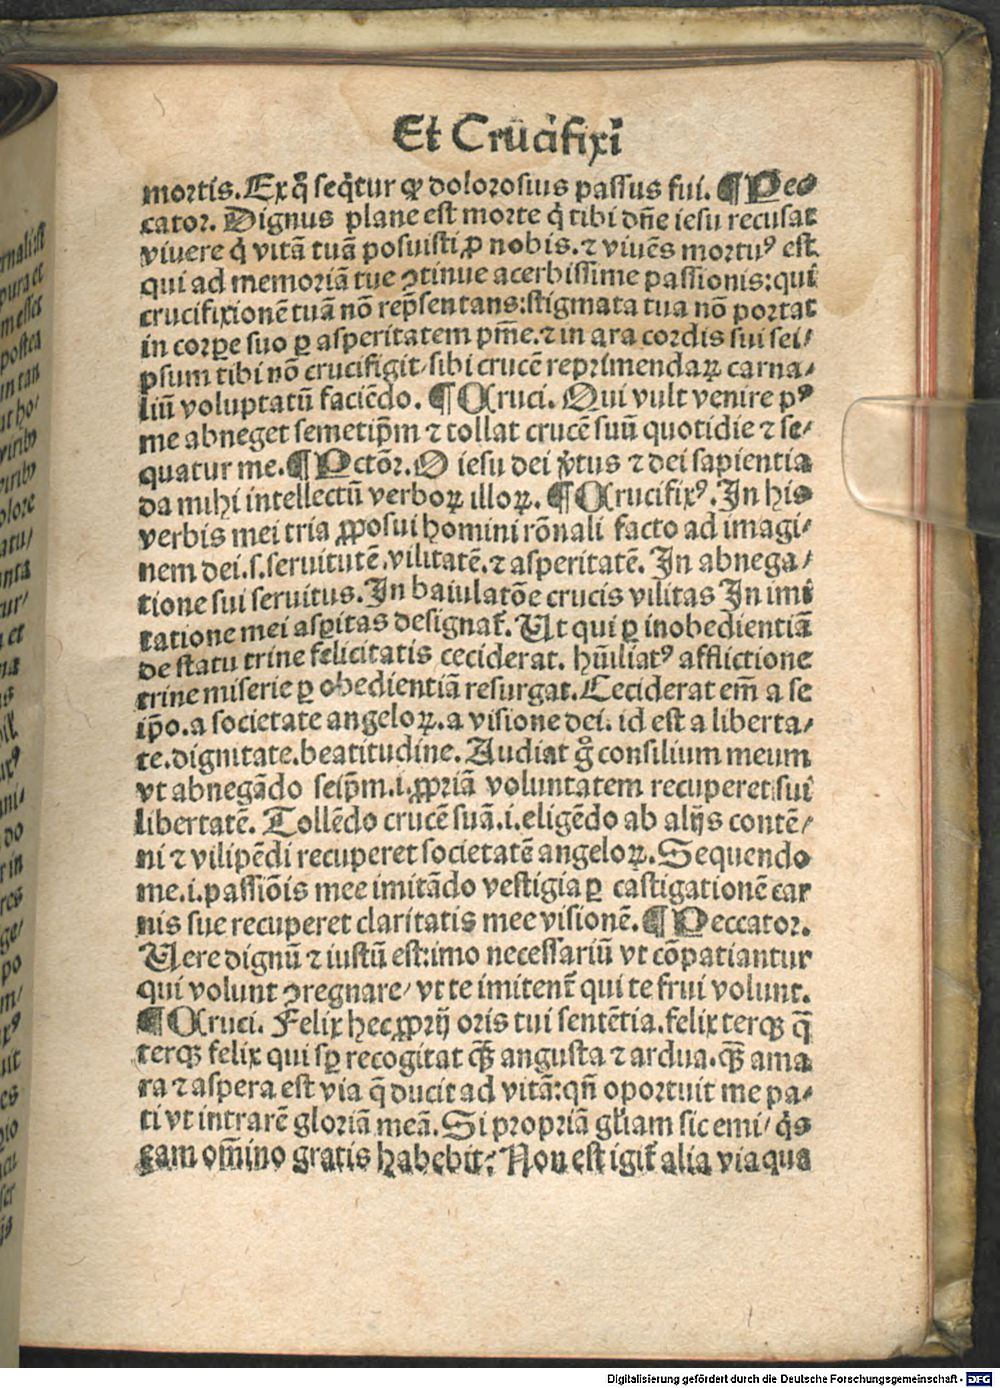 Et Crucifixi
mortis. Ex q̊ seq̃tur ꝙ dolorosius passus fui. ¶ Pec
cator. Dignus plane est morte q̇ tibi dñe iesu recusat
viuere q̇ vitã tuã posuisti ꝓ nobis. ⁊ viuẽs mortuꝰ est
qui ad memoriã tue ꝯtinue acerbissime passionis: qui
crucifixionẽ tuã nõ rep̃sentans: stigmata tua nõ portat
in corꝑe suo ꝑ asperitatem pm̃e. ⁊ in ara cordis sui sei/
psum tibi nõ crucifigit/ sibi crucẽ reprimendaꝝ carna/
liũ voluptatũ faciẽdo. ¶ Cruci. Qui vult venire pꝰ
me abneget semetip̃m ⁊ tollat crucẽ suũ quotidie ⁊ se/
quatur me. ¶ Pctõr. O iesu dei v̇tus ⁊ dei sapientia
da mihi intellectũ verboꝝ illoꝝ. ¶ Crucifixꝰ. In his
verbis mei tria ꝓposui homini rõnali facto ad imagi/
nem dei. s. seruitutẽ. vilitatẽ. ⁊ asperitatẽ. In abnega/
tione sui seruitus. In baiulatõe crucis vilitas In imi
tatione mei asꝑitas designat̃. Ut qui ꝑ inobedientiã
de statu trine felicitatis ceciderat. hũiliatꝰ afflictione
trine miserie ꝑ obedientiã resurgat. Ceciderat em̃ a se
ip̃o. a societate angeloꝝ. a visione dei. id est a liberta/
te. dignitate. beatitudine. Audiat g̊ consilium meum
vt abnegãdo seip̃m. i. ꝓpriã voluntatem recuperet sui
libertatẽ. Tollẽdo crucẽ suã. i. eligẽdo ab alijs contẽ/
ni ⁊ vilipẽdi recuperet societatẽ angeloꝝ. Sequendo
me. i. passiõis mee imitãdo vestigia ꝑ castigationẽ car
nis sue recuperet claritatis mee visionẽ. ¶ Peccator.
Uere dignũ ⁊ iustũ est: imo necessariũ vt cõpatiantur
qui volunt ꝯregnare/ vt te imitent̃ qui te frui volunt.
¶ Cruci. Felix hec ꝓprij oris tui sentẽtia. felix terqꝫ q̃
terqꝫ felix qui sꝑ recogitat q̃ꝫ angusta ⁊ ardua. q̃ꝫ ama
ra ⁊ aspera est via q̃ ducit ad vitã: qñ oportuit me pa/
ti vt intrarẽ gloriã meã. Si propriã gl̃iam sic emi/ q̇s
eam om̃ino gratis habebit? Non est igit̃ alia via qua
Digitalisierung gefördert durch die Deutsche Forschungsgemeinschaft - DFG